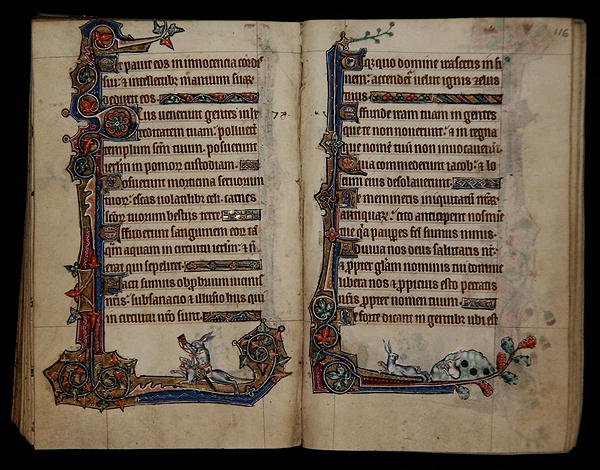 Et pauit eos in innocencia cordis
sui: & intellectib; manuum suar
deduxit eos.
Deus uenerunt gentes in he
reditatem tuam: polluerunt
templum scm tuum. posuerunt
ierlm in pomor custodiam.
Posuerunt morticina seruorum
tuor escas uolatilib; celi: carnes
scor tuorum bestiis terre
Effuderunt sanguinem eor tam
quam aquam in circuitu ierlm: & n
erat qui sepeliret.
Facti sumus obprobrium uicinis
nris: subsanacio & illusio hiis qui
in circuitu nro sunt.
116
Usq;quo domine irasceris in fi
nem: accendetur uelut ignis zelus
tuus
Effunde iram tuam in gentes
que te non nouerunt: & in regna
que nomen tuum non inuocauerunt
Quia comederunt iacob: & lo
cum eius desolauerunt.
Ne memineris iniquitatum nrar
antiquar: cito anticipent nos mie
tue qa paupes fci sumus nimis.
Adiuua nos deus salutaris nr:
& ppter gliam nominis tui domine
libera nos & propicius esto peccatis
nris propter nomen tuum.
Ne forte dicant in gentib; ubi est